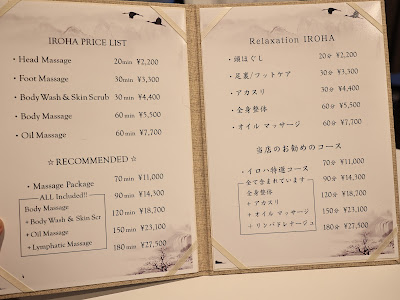 IROHA PRICE LIST
・Head Massage 20min ¥2,200
・Foot Massage 30min ¥3,300
・Body Wash & Skin Scrub 30min ¥4,400
・Body Massage 60min ¥5,500
・Oil Massage 60min ¥7,700
☆RECOMMENDED☆
・Massage Package 70min ¥11,000
ALL Included!! 90min ¥14,300
Body Massage
+Body Wash & Skin Scr 120min ¥18,700
+Oil Massage 150min ¥23,100
+Lymphatic Massage 180min ¥27,500
Relaxation IROHA
・頭ほぐし 20分 ¥2,200
・足裏/フットケア 30分 ¥3,300
・アカスリ 30分 ¥4,400
・全身整体 60分 ¥5,500
・オイル マッサージ 60分 ¥7,700
当店のお勧めのコース
・イロハ特選コース 70分 ¥11,000
全て含まれています 90分 ¥14,300
全身整体
+アカスリ 120分 ¥18,700
+オイル マッサージ 150分 ¥23,100
+リンパドレナージュ 180分 ¥27,500